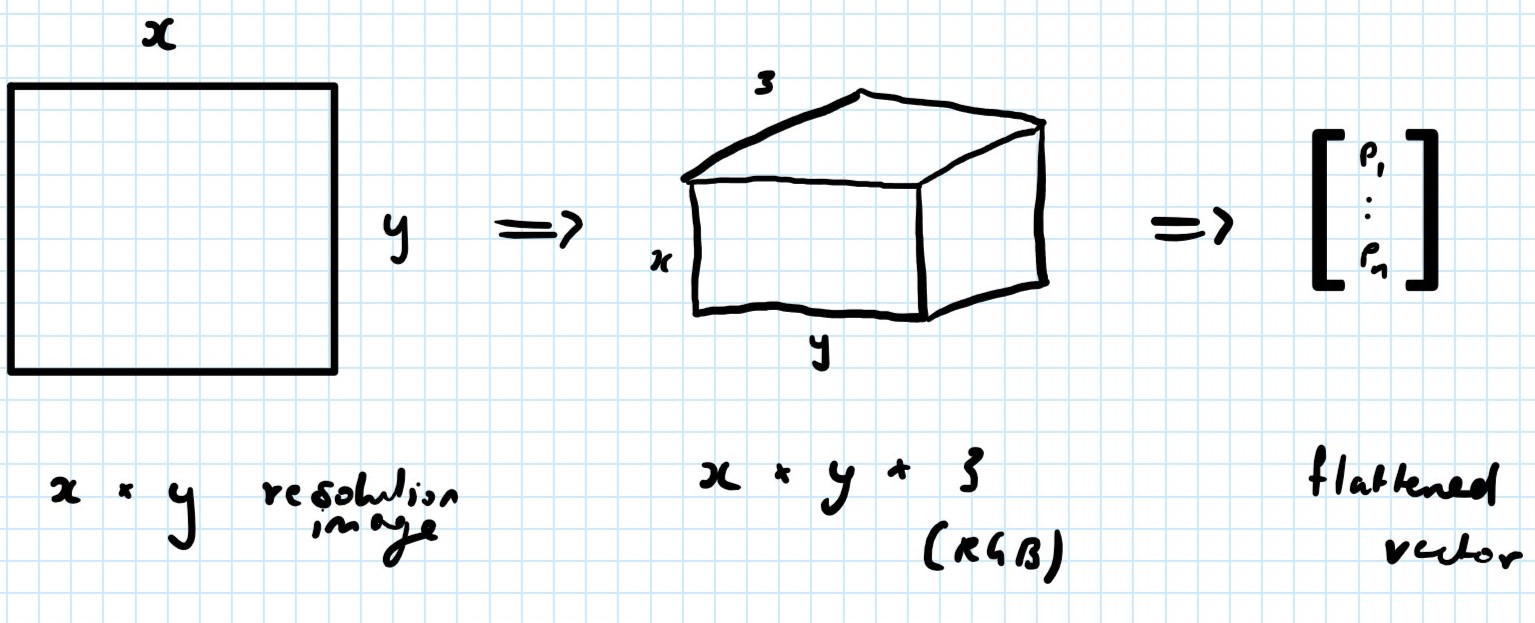 x
y
=>
3
x
y
=>
P1
:
Pn
x * y resolution
image
x * y * 3
(RGB)
flattened
vector